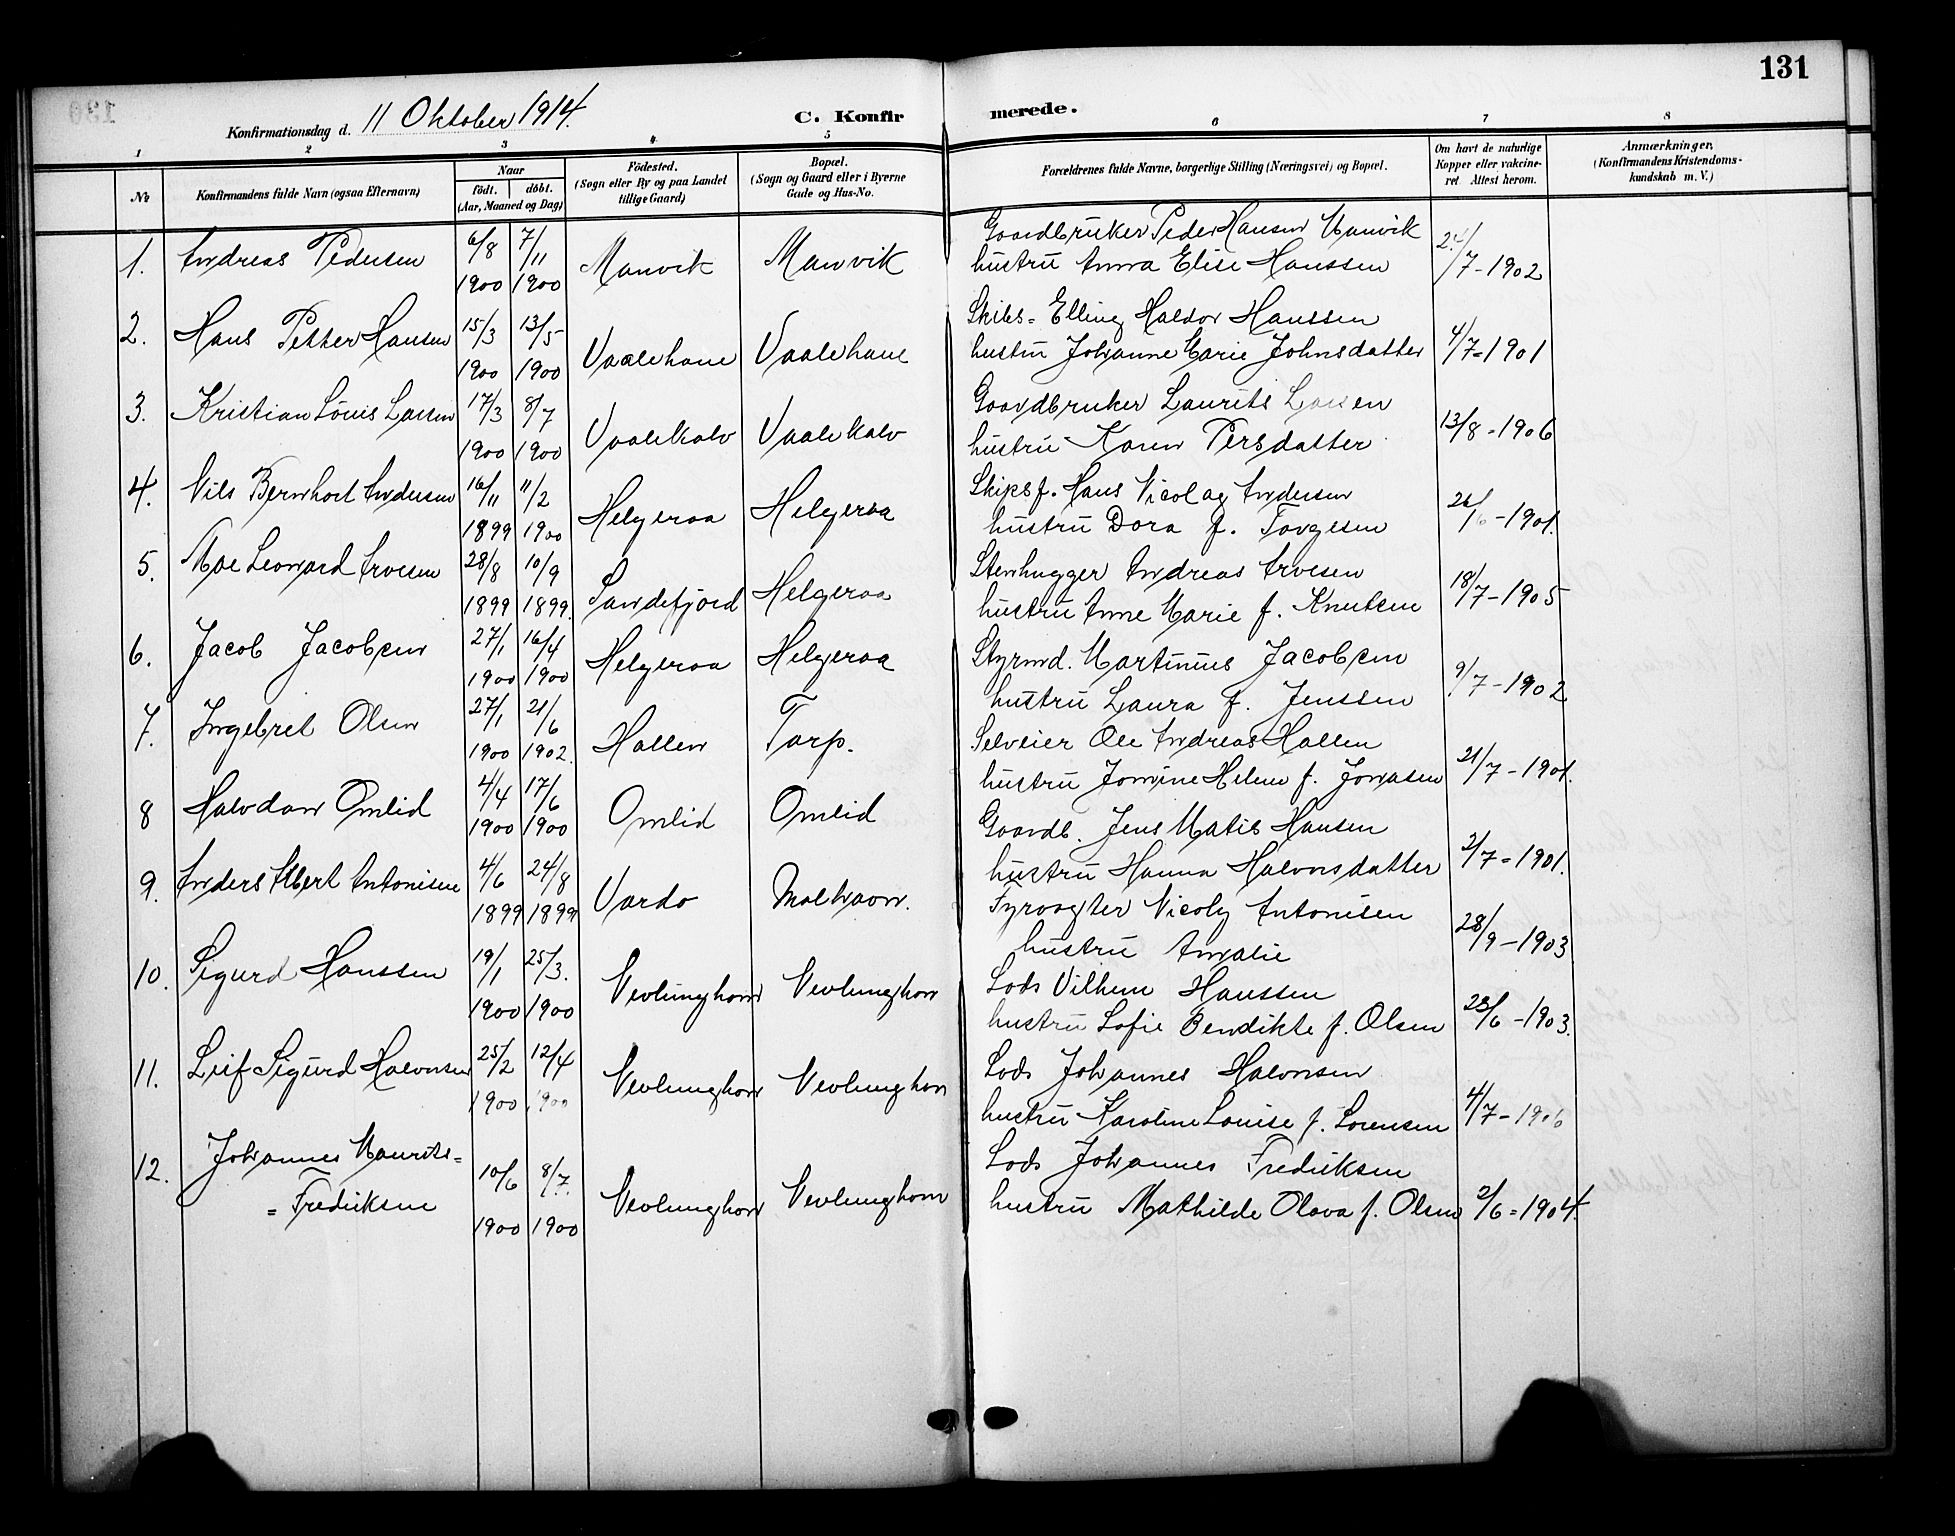 131
Konfirmationsdag d. 11 Oktober 1914.
C. Konfirmerede.
1 2 3 4 5 6 7 8
No
Konfirmandens fulde Navn (ogsaa Efternavn)
Naar
födt. döbt.
(Aar, Maaned og Dag)
Födested.
(Sogn eller By og paa Landet
tillige Gaard)
Bopæl.
(Sogn og Gaard eller i Byerne
Gade og Hus-No.
Forældrenes fulde Navne, borgerlige Stilling (Næringsvei) og Bopæl.
Om havt de naturlige
Kopper eller vakcine-
ret Attest herom.
Anmærkninger,
(Konfirmandens Kristendoms-
kundskab m. V.)
1. Andreas Pedersen 6/8 1900 7/11 1900 Manvik Manvik
Gaardbruker Peder Hansen Manvik
hustru Anna Elise Hanssen 24/7-1902
2. Hans Petter Hansen 15/3 1900 13/5 1900 Vaalehaue Vaalehaue
Skibs= Elling Haldor Hanssen
hustru Johanne Marie Johnsdatter 4/7=1901
3. Kristian Louis Larsen 17/3 1900 8/7 1900 Vaalekalv Vaalekalv
Gaardbruker Laurits Larsen
hustru Karen Persdatter 13/8-1906
4. Nils Bernhart Andersen 16/11 1899 11/2 1900 Helgeroa Helgeroa
Skipsf. Hans Nicolay Andersen
hustru Dora f. Torgesen 26/6-1901.
5. Moe Leonard Aroesen 28/8 1899 10/9 1899. Sandefjord Helgeroa
Stenhugger Andreas Aroesen
hustru Anne Marie f. Knutsen 18/7-1905
6. Jacob Jacobsen 27/1 1900 16/4 1900 Helgeroa Helgeroa
Styrmd. Martinius Jacobsen
hustru Laura f. Jenssen 9/7-1902
7. Ingebret Olsen 27/1 1900 21/6 1902. Hallen Tarp.
Selveier Ole Andreas Hallen
hustru Jomine Helene f. Jonasen 21/7-1901.
8 Halvdan Omlid 4/4 1900 17/6 1900 Omlid Omlid
Gaardb. Jens Matis Hansen
hustru Hanna Halvorsdatter 2/7=1901.
9. Anders Albert Antonisen 4/6 1899 24/8 1899 Vardo
Fyrvogter Nicoly Antonisen
hustru Amalie 28/9-1903
10. Sigurd Hanssen 19/1 1900 25/3. 1900 Nevlunghavn Nevlunghavn
Lods Vilhem Hanssen
hustru Sofie Bendikte f. Olsen 23/6-1903.
11. Leif Sigurd Halvorsen 25/2 1900 12/4 1900 Nevlunghavn Nevlunghavn
Lods Johannes Halvorsen
hustru Karoline Louise f. Sorensen 4/7-1906
12. Johannes Maurits=
= Fredriksen 10/6 1900 8/7. 1900 Nevlunghavn Nevlunghavn
Lods Johannes Fredriksen
hustru Mathilde Olava f. Olsen 2/6=1904.